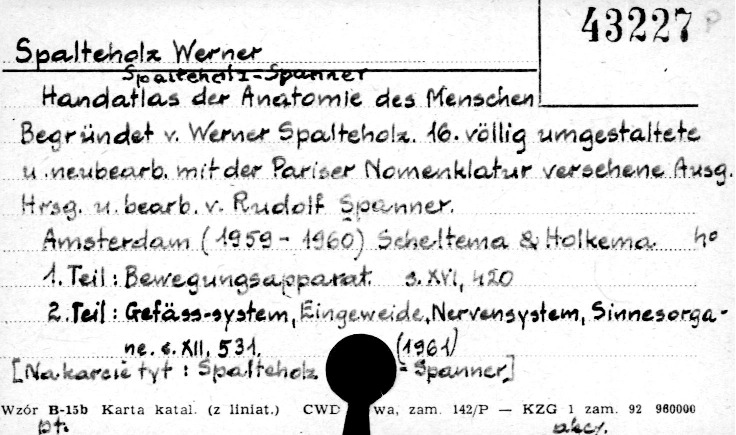 43227 P
Spalteholz Werner
Spalteholz-Spanner
Handatlas der Anatomie des Menschen
Begründet v. Werner Spalteholz. 16. völlig umgestaltete
u. neubearb. mit der Pariser Nomenklatur versehene Ausg.
Hrsg. u. bearb. v. Rudolf Spanner.
Amsterdam (1959-1960) Scheltema & Holkema. h°
1. Teil: Bewegungsapparat. s. XVI, 420
2. Teil: Gefäss-system, Eingeweide, Nervensystem, Sinnesorga-
ne. s. XII, 531. (1961)
[Na karcie tyt: Spalteholz - Spanner]
Wzór B-15b Karta katal. (z liniat.) CWD wa, zam. 142/P — KZG 1 zam. 92 960000
pt. akc.